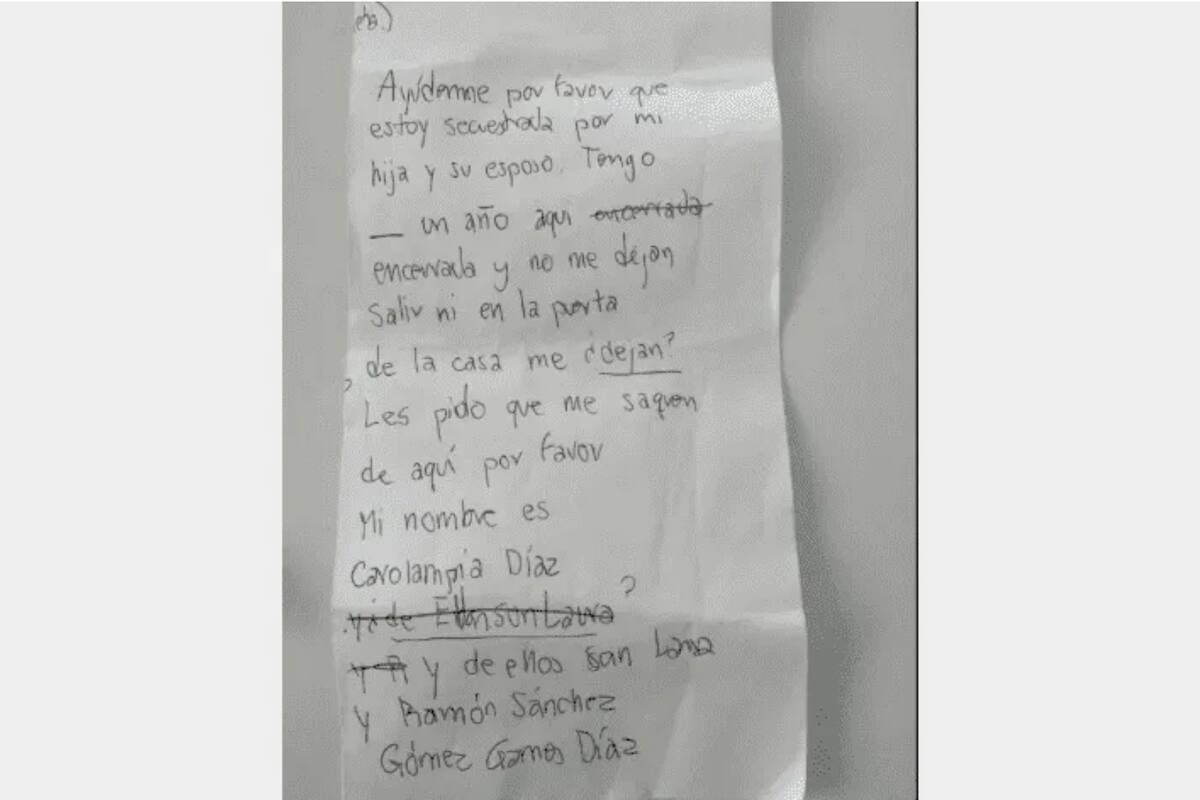 ets.)
Ayúdenme por favor que
estoy secuestrada por mi
hija y su esposo. Tengo
__ un año aqui encerrada
encerrada y no me dejan
Salir ni en la puerta
de la casa me ¿dejan?
Les pido que me saquen
de aquí por favor
Mi nombre es
Carolampia Díaz
y de Ellos son Laura ?
y de ellos son
y Ramón Sánchez
Gómez Díaz